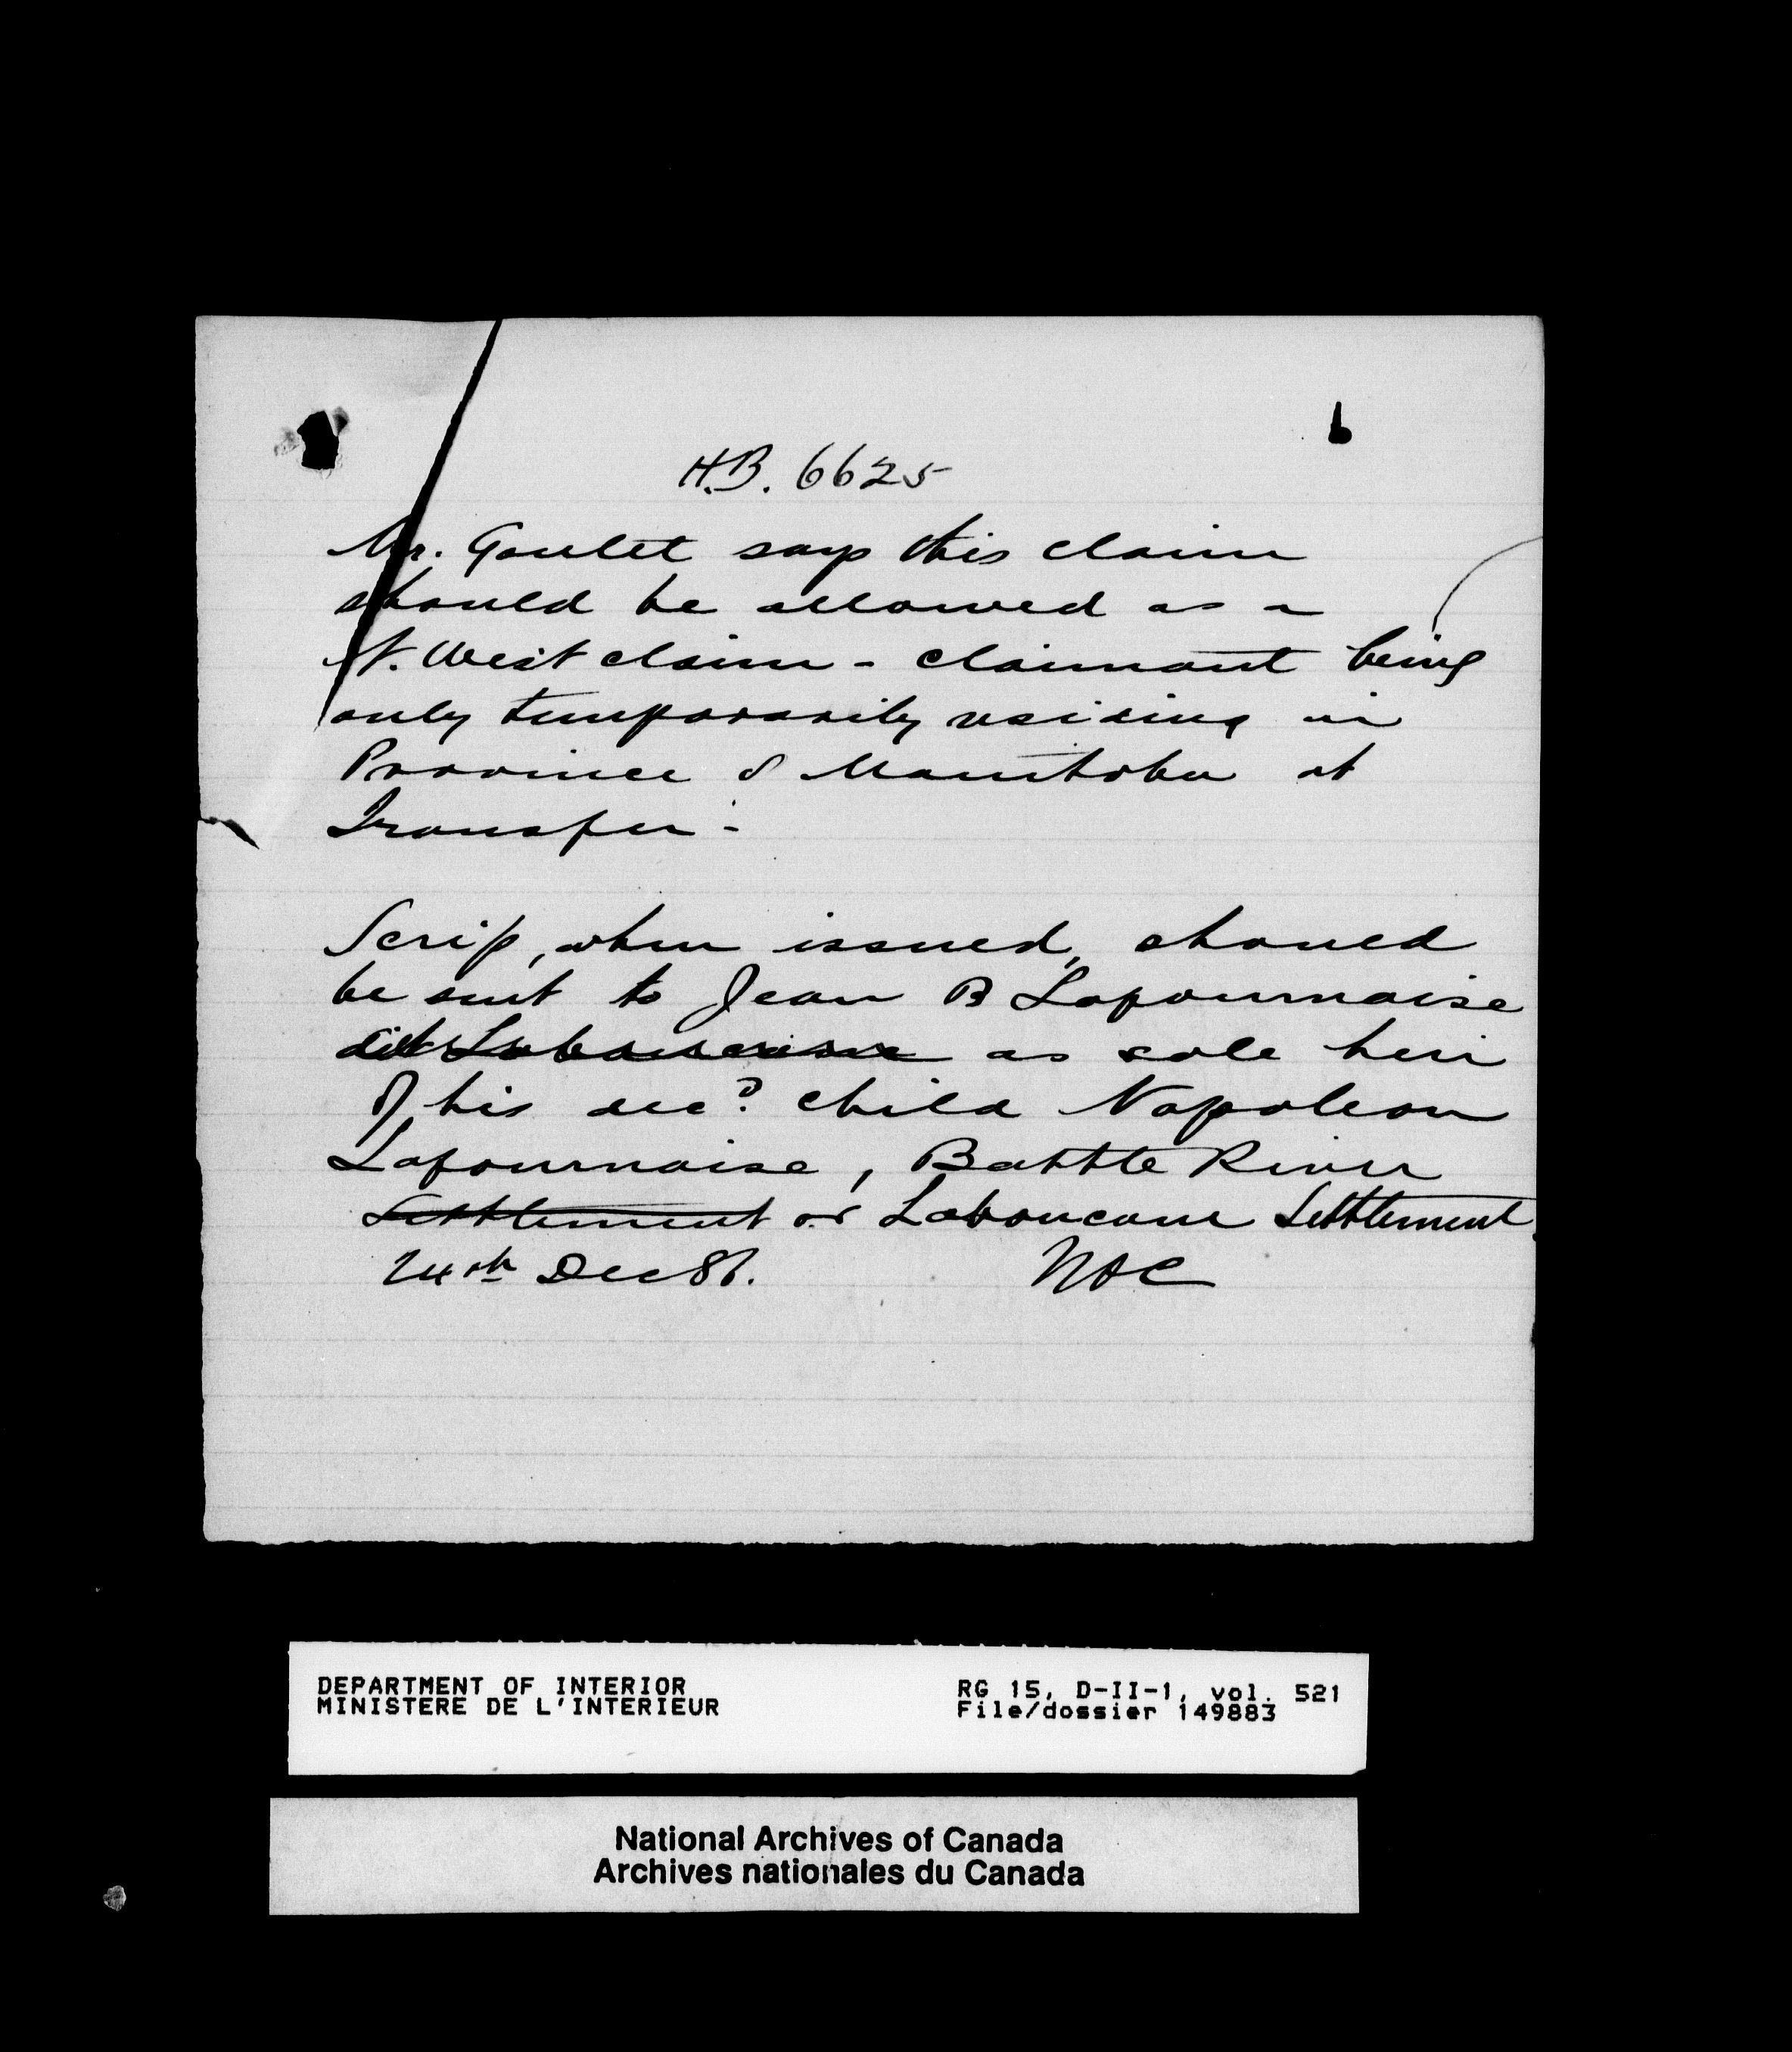 6
H.B. 6625
Mr. Goulet says this claim
should be allowed as a
N. West claim - claimant being
only temporarily residing in
Province of Manitoba at
Transfer -
Scrip, when issued, should
be sent to Jean B Lafournaise
dit as sole heir
of his decd. child Napoleon
Lafournaise, Battle River
Settlement or Laboucane Settlement
24th Dec 86.
NOC
DEPARTMENT OF INTERIOR
MINISTERE DE L'INTERIEUR
RG 15, D-II-1, vol. 521
File/dossier 149883
National Archives of Canada
Archives nationales du Canada